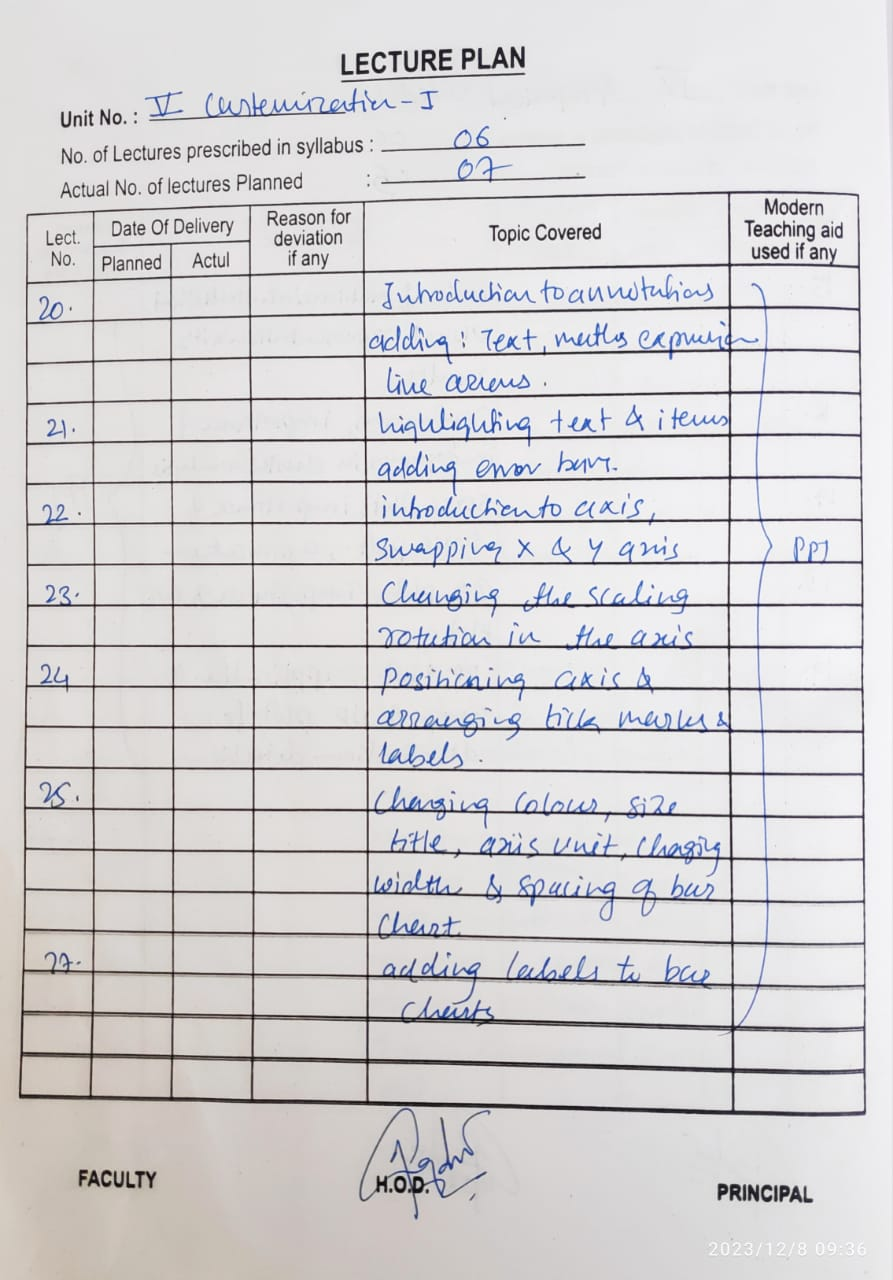 LECTURE PLAN
Unit No. : V Customization - I
No. of Lectures prescribed in syllabus : 06
Actual No. of lectures Planned : 07
Lect. No.
Date Of Delivery
Planned
Actul
Reason for deviation if any
Topic Covered
Modern Teaching aid used if any
20. Introduction to annotations
adding : Text, maths expression
line arrows .
21. highlighting text & items
adding error bars.
22. introduction to axis,
swapping x & y axis PPT
23. Changing the scaling
rotation in the axis
24 positioning axis &
arranging tick marks &
labels .
25. Changing Colour, size
title, axis unit, Chaging
width & spacing of bar
Chart
27. adding labels to bar
Charts
FACULTY
H.O.D.
PRINCIPAL
2023/12/8 09:36